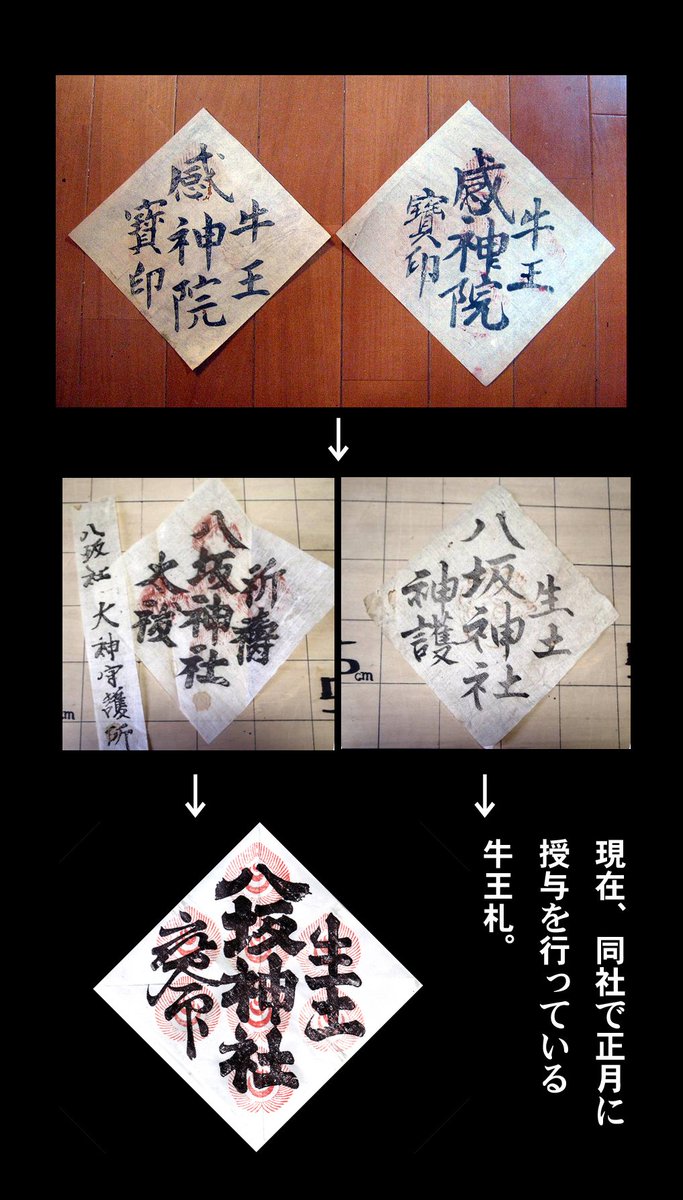 牛王
感神院
寶印
牛王
感神院
寶印
八坂社
神守護所
祈禱
八坂神社
cm
生土
八坂神社
神護
5cm
生土
八坂神社
現在、同社で正月に
授与を行っている
牛王札。